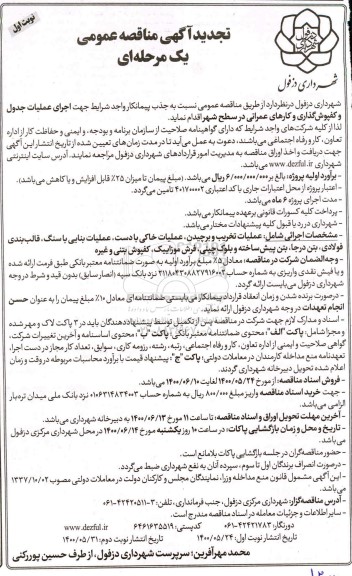 نوبت اول
تجدید آگهی مناقصه عمومی
یک مرحله‌ای
شهرداری دزفول
شهرداری دزفول درنظردارد از طریق مناقصه عمومی نسبت به جذب پیمانکار واجد شرایط جهت اجرای عملیات جدول
و کفپوش‌گذاری و کارهای عمرانی در سطح شهر اقدام نماید.
لذا از کلیه شرکت‌های واجد شرایط که دارای گواهینامه صلاحیت از سازمان برنامه و بودجه، و ایمنی و حفاظت کار از اداره
تعاون، کار و رفاه اجتماعی می‌باشند، دعوت به عمل می‌آید تا در مدت زمان‌های تعیین شده از تاریخ انتشار این آگهی
جهت دریافت و اخذ اوراق مناقصه به مدیریت امور قراردادهای شهرداری دزفول مراجعه نمایند. آدرس سایت اینترنتی
شهرداری www.dezful.ir می‌باشد.
- برآورد اولیه پروژه: بالغ بر ۶/۰۰۰/۰۰۰/۰۰۰ ریال می‌باشد. (مبلغ پیمان تا میزان ۲۵٪ قابل افزایش و یا کاهش می‌باشد).
- اعتبار پروژه از محل اعتبارات جاری با کد اعتباری ۴۰۱۷۰۰۰۲ تامین می‌گردد.
- مدت اجرای پروژه ۶ ماه می‌باشد.
- پرداخت کلیه کسورات قانونی برعهده پیمانکار می‌باشد.
- شهرداری در رد یا قبول کلیه پیشنهادات مختار می‌باشد.
- مشخصات اجرائی شامل: عملیات تخریب و برچیدن، عملیات خاکی با دست، عملیات بنایی با سنگ، قالب‌بندی
فولادی، بتن درجا، بتن پیش ساخته و بلوک‌چینی، فرش موزاییک، کفپوش بتنی و غیره
- وجه‌الضمان شرکت در مناقصه: معادل ۵٪ مبلغ برآورد اولیه به صورت ضمانتنامه معتبر بانکی طبق فرمت ارائه شده
و یا فیش نقدی واریزی به شماره حساب نزد بانک سپه (انصار سابق) بدون قید و شرط در وجه
شهرداری دزفول می‌بایست ارائه گردد.
- درصورت برنده شدن و زمان انعقاد قرارداد پیمانکار می‌بایستی ضمانتنامه‌ای معادل ۱۰٪ مبلغ پیمان را به عنوان حسن
انجام تعهدات در وجه شهرداری دزفول ارائه نماید.
- اسناد و مدارک لازم جهت شرکت در مناقصه پس از تکمیل توسط پیشنهاددهندگان باید در ۳ پاکت لاک و مهر شده
و مجزا شامل: پاکت "الف": محتوی ضمانتنامه معتبر بانکی؛ پاکت "ب": محتوی اساسنامه و آخرین تغییرات شرکت،
گواهی صلاحیت و ایمنی از اداره تعاون، کار و رفاه اجتماعی، رتبه، رشته، رزومه کاری، سوابق، تعداد کار مجاز در دست اجرا،
تعهدنامه منع مداخله کارمندان در معاملات دولتی؛ پاکت "ج": پیشنهاد قیمت با برآورد محاسبات مربوطه در وقت و زمان
اعلام شده تحویل دبیرخانه شهرداری گردد.
- فروش اسناد مناقصه: از مورخ ۱۴۰۰/۰۵/۲۴ لغایت ۱۴۰۰/۰۶/۱۰ می‌باشد.
- جهت خرید اسناد مناقصه واریز مبلغ ۸۰۰/۰۰۰ ریال به شماره حساب ۰۱۰۶۳۱۴۸۳۴۰۰۳ نزد بانک ملی میدان تره‌بار
الزامی می‌باشد.
- آخرین مهلت تحویل اوراق و اسناد مناقصه: تا ساعت ۱۱ مورخ ۱۴۰۰/۰۶/۱۳ به دبیرخانه شهرداری می‌باشد.
- تاریخ و محل و زمان بازگشایی پاکات: در ساعت ۱۰ روز یکشنبه مورخ ۱۴۰۰/۰۶/۱۴ در محل شهرداری مرکزی دزفول
می‌باشد.
- حضور مناقصه‌گران در جلسه بازگشایی پاکات بلامانع است.
- درصورت انصراف برندگان اول تا سوم، سپرده آنان به نفع شهرداری ضبط می‌گردد.
- این آگهی مشمول قانون منع مداخله وزراء، نمایندگان مجلس و کارکنان دولت در معاملات دولتی مصوب ۱۳۳۷/۱۰/۰۲
می‌باشد.
- آدرس مناقصه‌گزار: شهرداری مرکزی دزفول، جنب فرمانداری، تلفن: ۳-۴۲۴۲۰۵۱۱-۰۶۱
- سایر اطلاعات و جزئیات معامله در اسناد مناقصه مندرج است.
دورنگار: ۴۲۴۲۱۷۸۳-۰۶۱ کدپستی: ۶۴۶۱۶۳۵۵۱۹ www.dezful.ir
تاریخ انتشار نوبت اول: ۱۴۰۰/۰۵/۲۴ تاریخ انتشار نوبت دوم: ۱۴۰۰/۰۵/۳۱
محمد مهرآفرین؛ سرپرست شهرداری دزفول، از طرف حسین پوررکنی